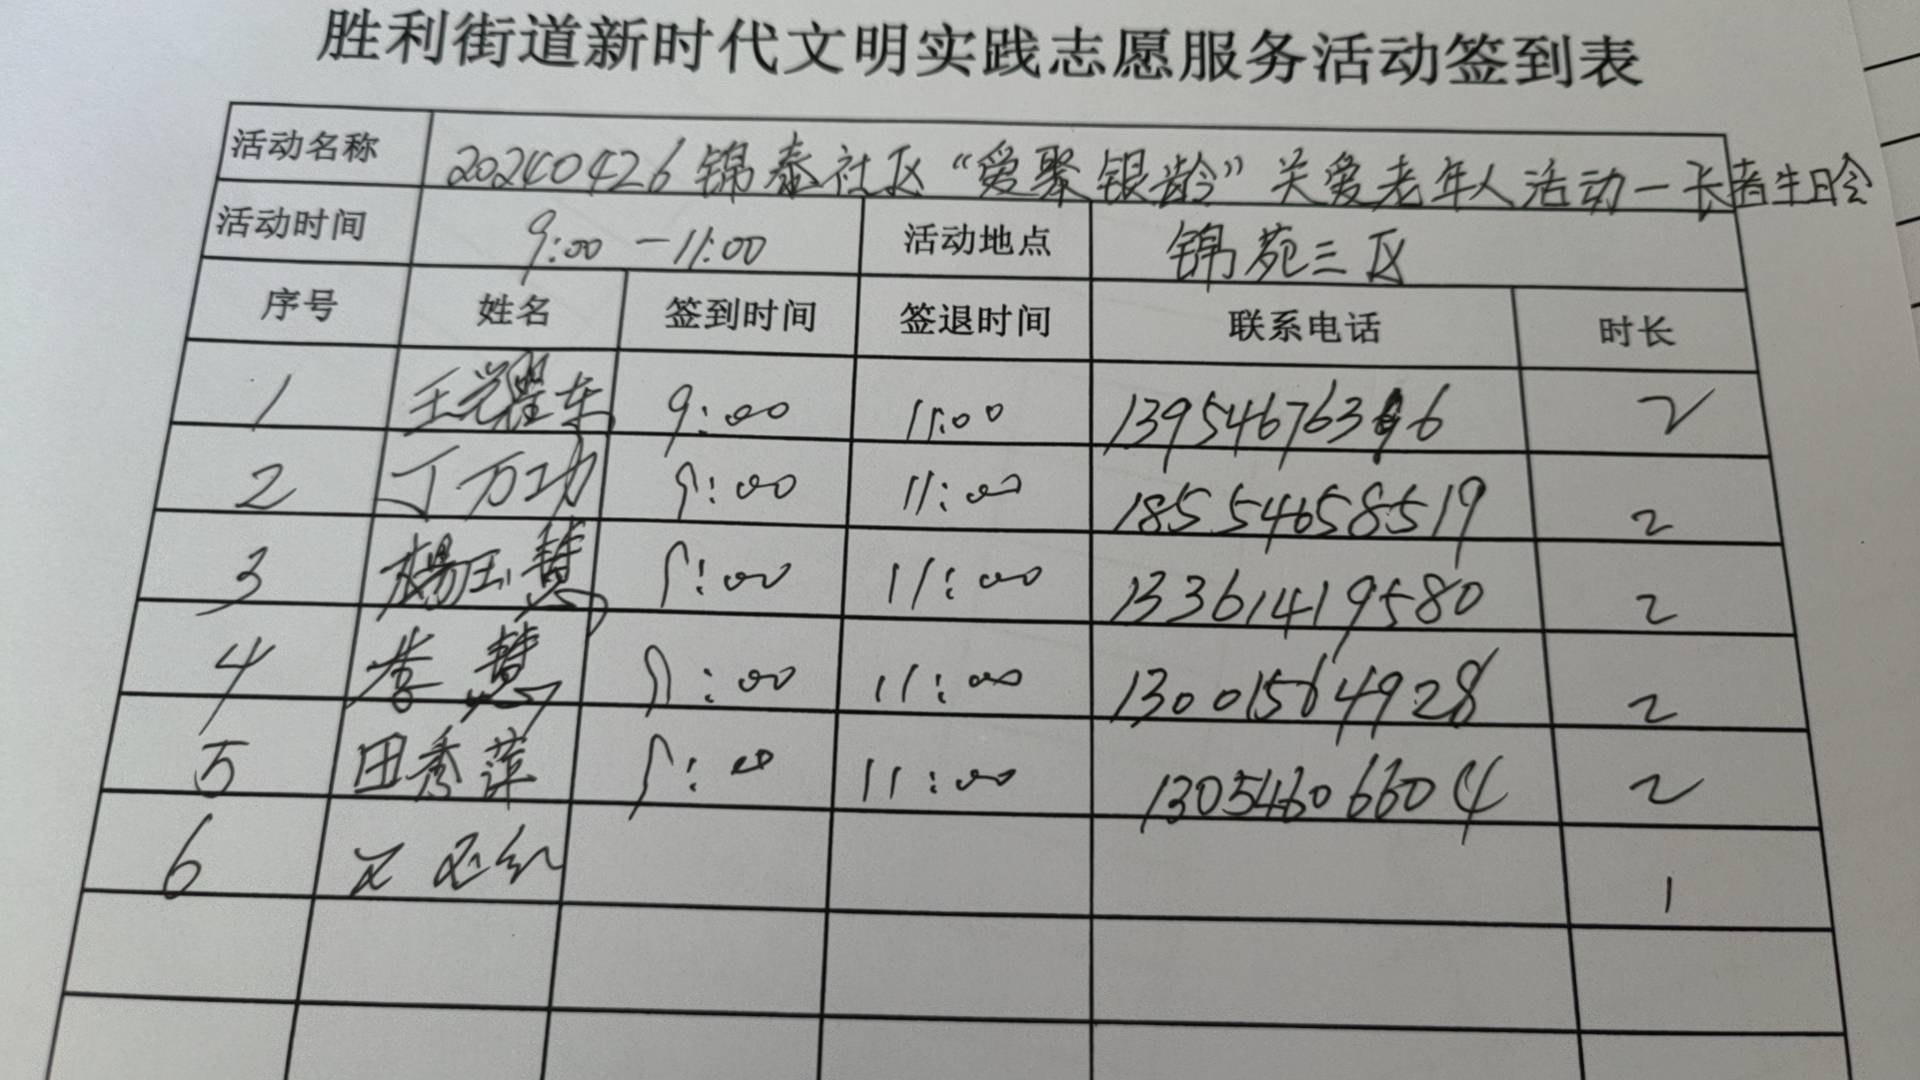 胜利街道新时代文明实践志愿服务活动签到表
活动名称 20240426锦泰社区“爱聚银龄”关爱老年人活动一长者生日会
活动时间 9:00-11:00 活动地点 锦苑三区
序号 姓名 签到时间 签退时间 联系电话 时长
1 王耀东 9:00 11:00 139546763 6 2
2 丁万功 9:00 11:00 18554658519 2
3 杨玉慧 9:00 11:00 13361419580 2
4 李慧 9:00 11:00 13001564928 2
5 田秀萍 9:00 11:00 13054606604 2
6 1